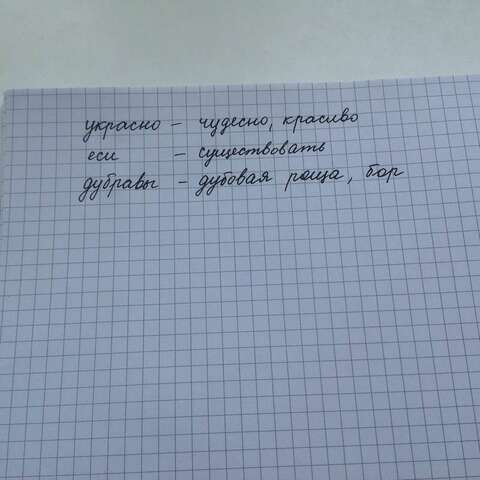 украсно - чудесно, красиво
еси - существовать
дубравы - дубовая роща, бор